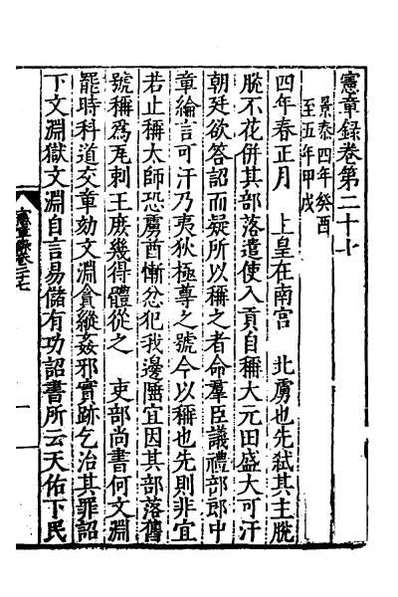 憲章錄卷第二十七
景泰四年癸酉
至五年甲戌
四年春正月　上皇在南宮　北虜也先弒其主脫
脫不花併其部落遣使入貢自稱大元田盛大可汗
朝廷欲答詔而疑所以稱之者命羣臣議禮部郎中
章綸言可汗乃夷狄極尊之號今以稱也先則非宜
若止稱太師恐虜酋慚忿犯我邊陲宜因其部落舊
號稱為瓦剌王庶幾得體從之　吏部尚書何文淵
罷時科道交章劾文淵貪縱姦邪實跡乞治其罪詔
下文淵獄文淵自言易儲有功詔書所云天佑下民
憲章錄卷二十七
一